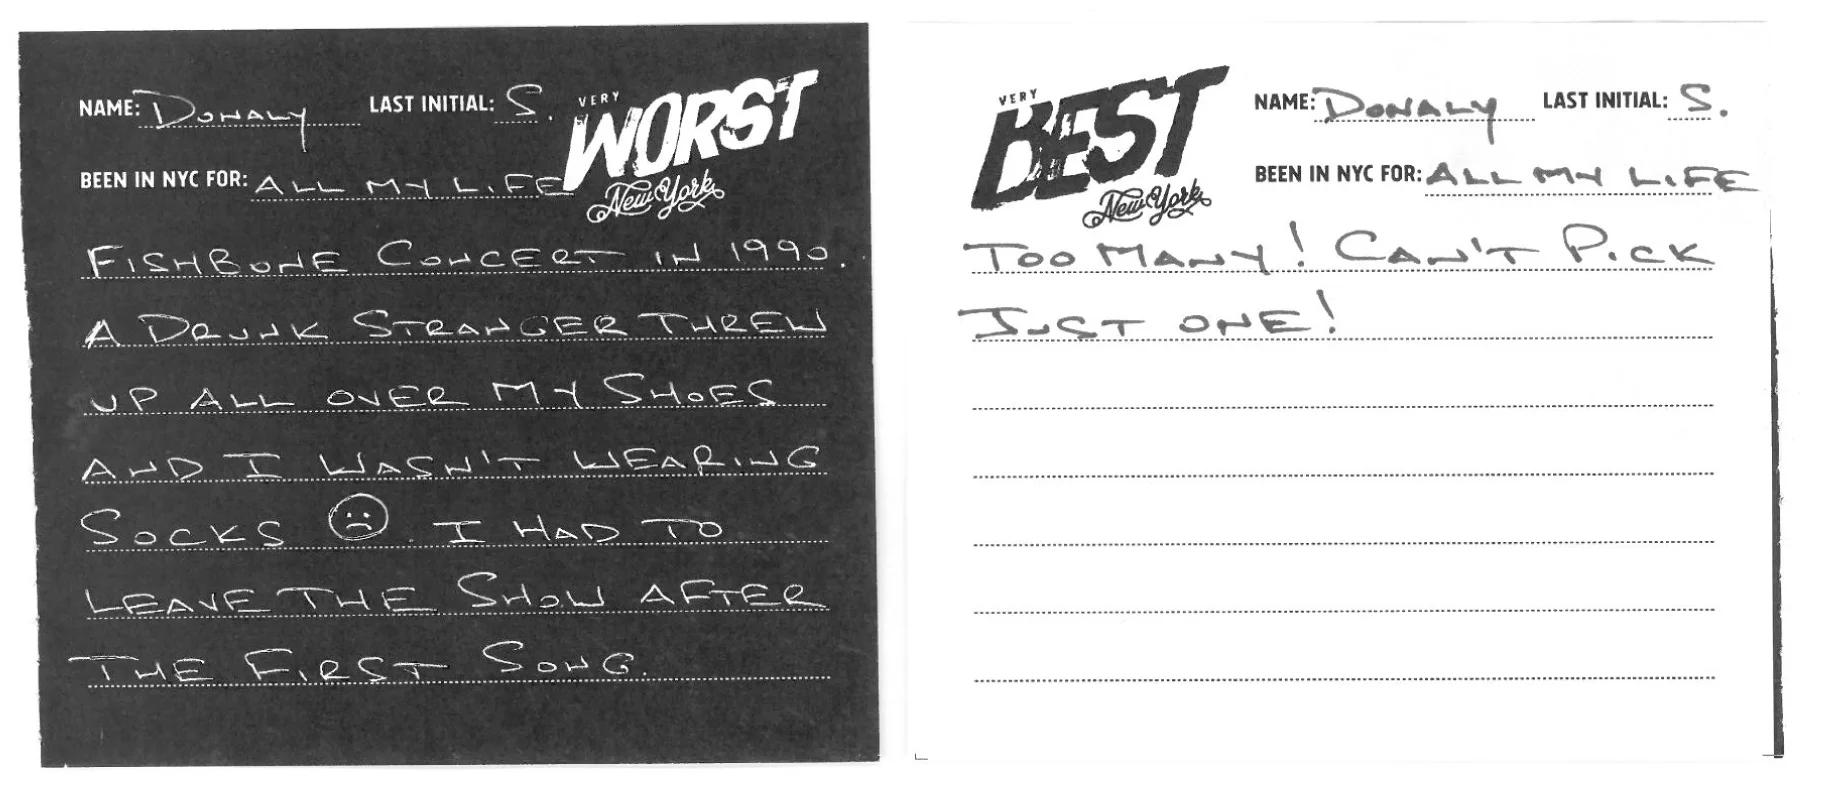 NAME: DONALY LAST INITIAL: S.
VERY WORST New York
BEEN IN NYC FOR: ALL MY LIFE
FISHBONE CONCERT IN 1990.
A DRUNK STRANGER THREW
UP ALL OVER MY SHOES
AND I WASN'T WEARING
SOCKS ☹. I HAD TO
LEAVE THE SHOW AFTER
THE FIRST SONG.
VERY BEST New York
NAME: DONALY LAST INITIAL: S.
BEEN IN NYC FOR: ALL MY LIFE
TOO MANY! CAN'T PICK
JUST ONE!